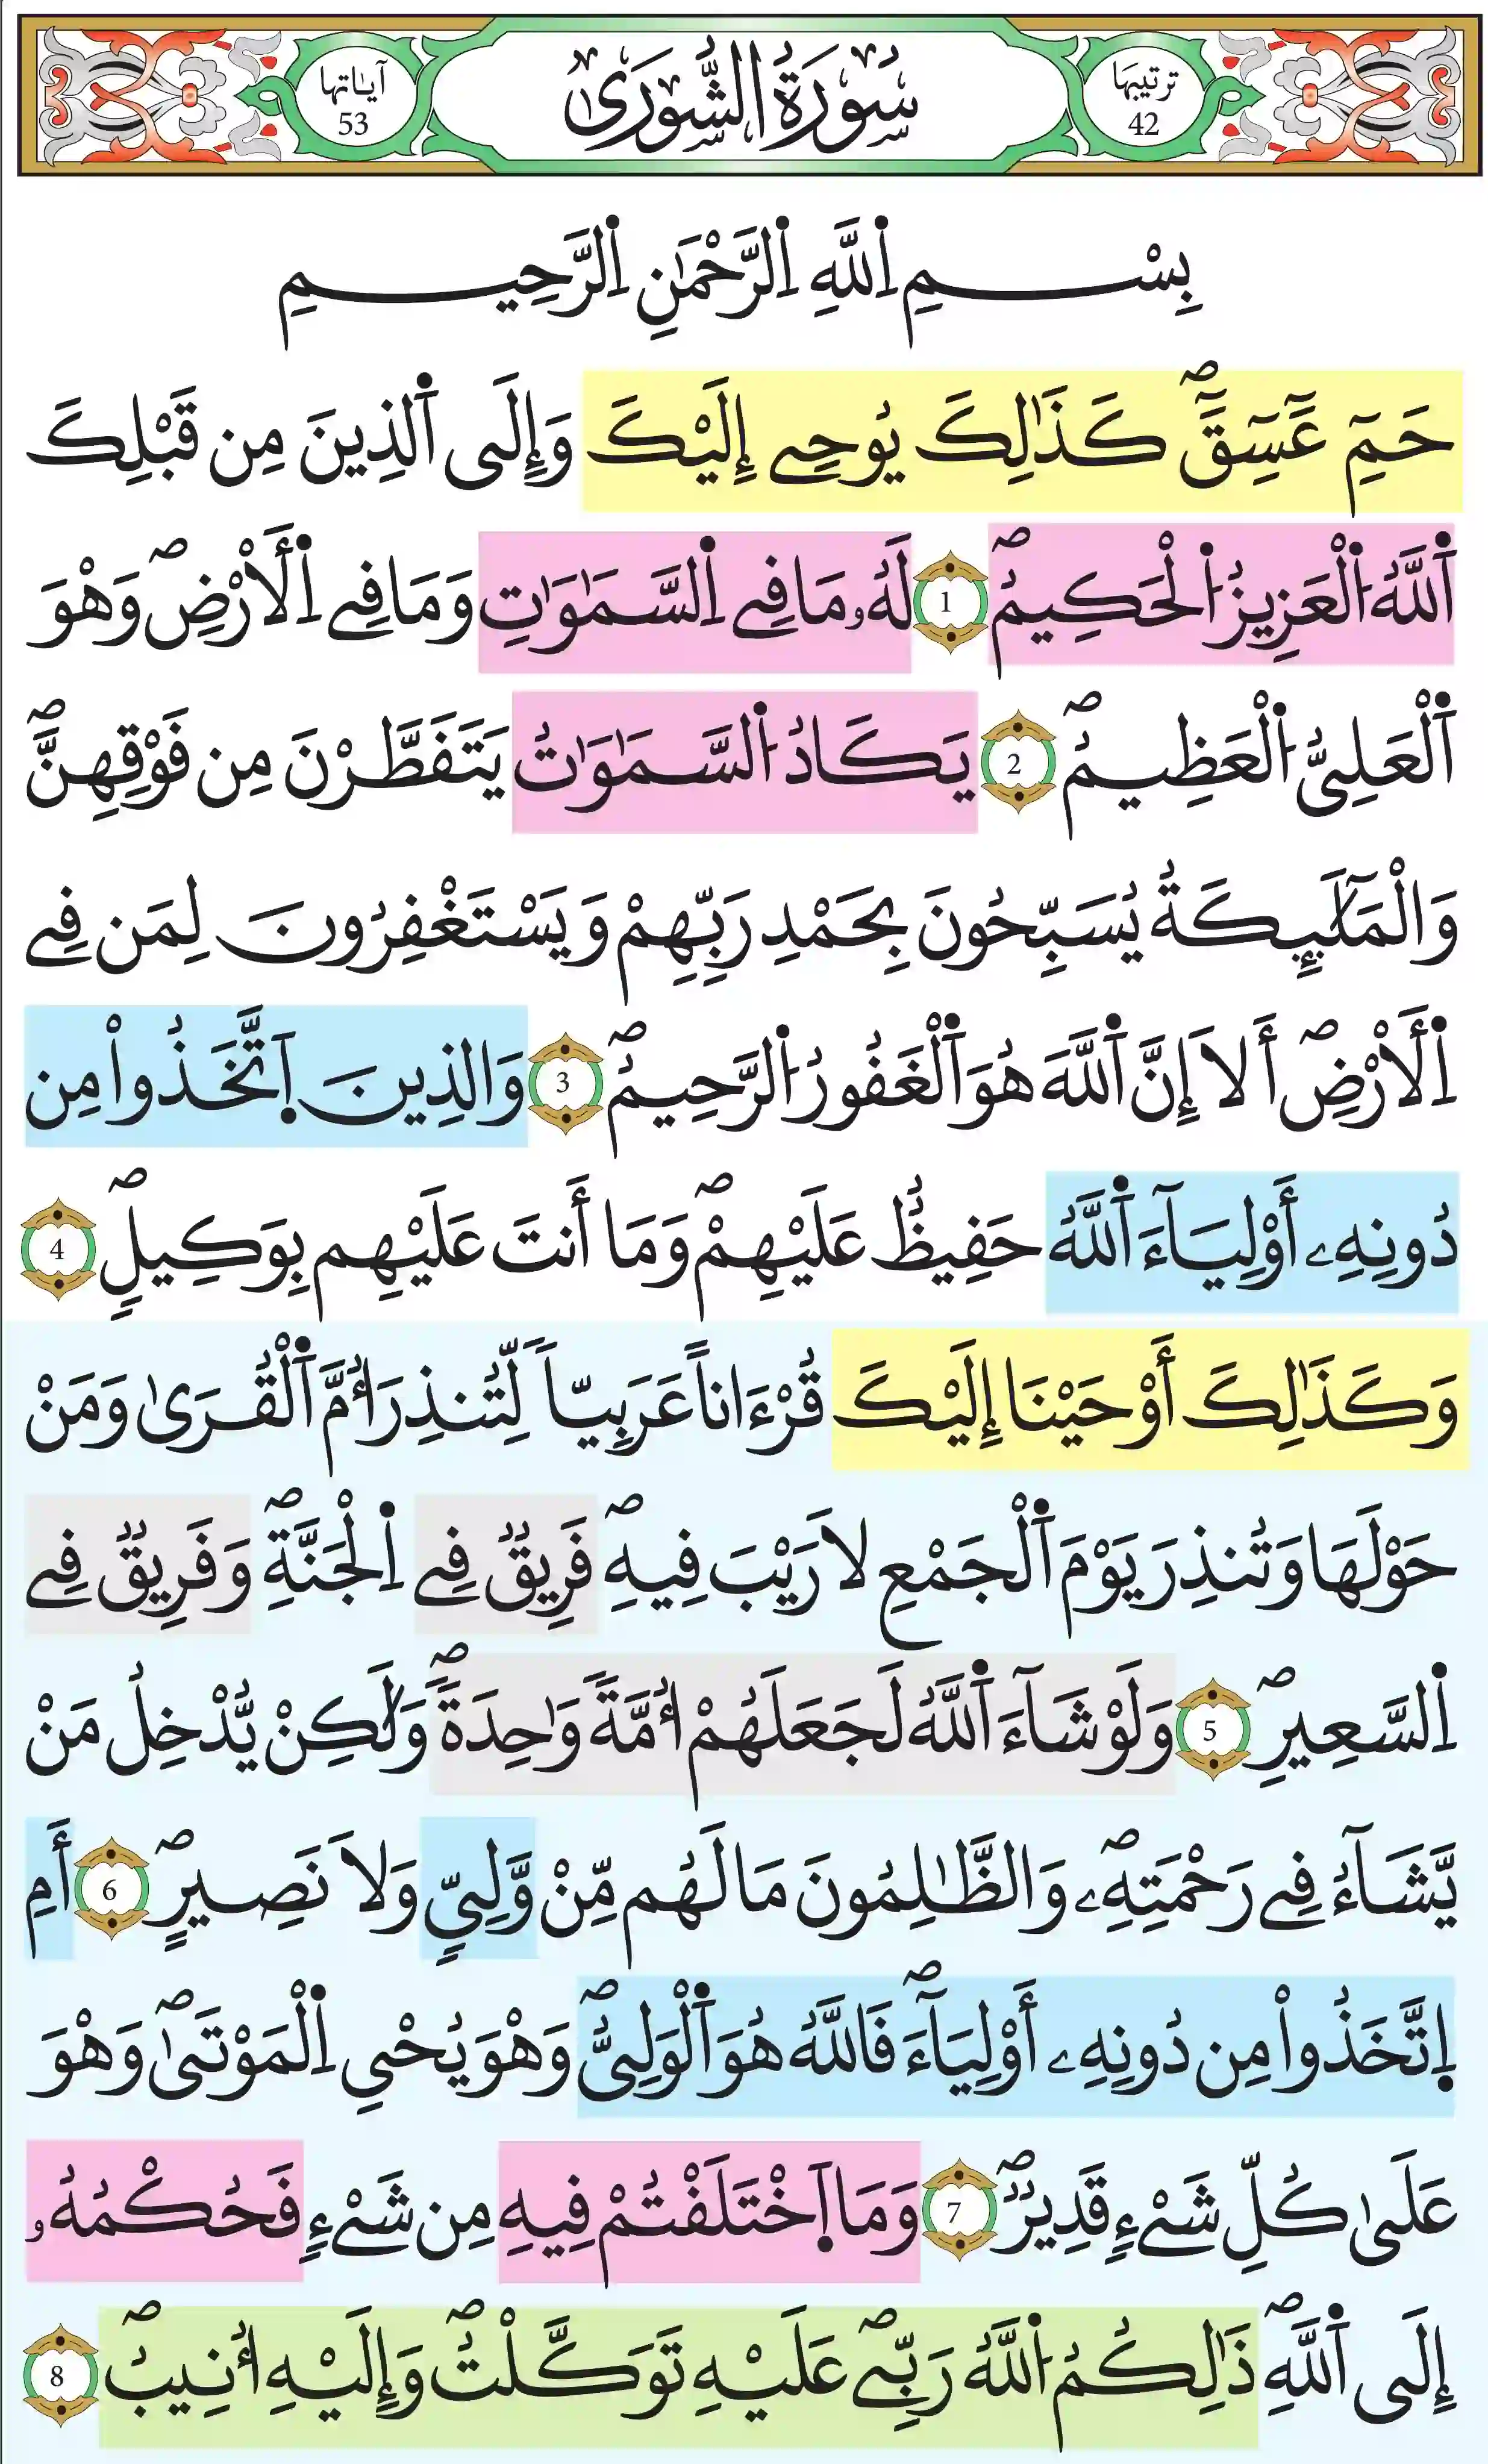 ترتيبها 42
سُورَةُ الشُّورَىٰ
آياتها 53
بِسْمِ اِ۬للَّهِ اِ۬لرَّحْمَٰنِ اِ۬لرَّحِيمِ
حَمِٓ عَٓسِٓقَٓۖ كَذَٰلِكَ يُوحِےٓ إِلَيْكَ وَإِلَى اَ۬لذِينَ مِن قَبْلِكَ
اَ۬للَّهُ اُ۬لْعَزِيزُ اُ۬لْحَكِيمُۖ 1 لَهُۥ مَا فِے اِ۬لسَّمَٰوَٰتِ وَمَا فِے اِ۬لَارْضِۖ وَهْوَ
اَ۬لْعَلِىُّ اُ۬لْعَظِيمُۖ 2 يَكَادُ اُ۬لسَّمَٰوَٰتُ يَتَفَطَّرْنَ مِن فَوْقِهِنَّۖ
وَالْمَلَٰٓئِكَةُ يُسَبِّحُونَ بِحَمْدِ رَبِّهِمْ وَيَسْتَغْفِرُونَ لِمَن فِے
اِ۬لَارْضِۖ أَلَا إِنَّ اَ۬للَّهَ هُوَ اَ۬لْغَفُورُ اُ۬لرَّحِيمُۖ 3 وَالذِينَ اَ۪تَّخَذُواْ مِن
دُونِهِۦٓ أَوْلِيَآءَ اَ۬للَّهُ حَفِيظٌ عَلَيْهِمْۖ وَمَا أَنتَ عَلَيْهِم بِوَكِيلٍۖ 4
وَكَذَٰلِكَ أَوْحَيْنَا إِلَيْكَ قُرْءَاناً عَرَبِيّاً لِّتُنذِرَ أُمَّ اَ۬لْقُرَىٰ وَمَنْ
حَوْلَهَا وَتُنذِرَ يَوْمَ اَ۬لْجَمْعِ لَا رَيْبَ فِيهِۖ فَرِيقٌ فِے اِ۬لْجَنَّةِۖ وَفَرِيقٌ فِے
اِ۬لسَّعِيرِۖ 5 وَلَوْ شَآءَ اَ۬للَّهُ لَجَعَلَهُمْ أُمَّةً وَٰحِدَةًۖ وَلَٰكِنْ يُّدْخِلُ مَنْ
يَّشَآءُ فِے رَحْمَتِهِۦۖ وَالظَّٰلِمُونَ مَا لَهُم مِّنْ وَّلِيٍّ وَلَا نَصِيرٍۖ 6 أَمِ
اِ۪تَّخَذُواْ مِن دُونِهِۦ أَوْلِيَآءَۖ فَاللَّهُ هُوَ اَ۬لْوَلِىُّۖ وَهْوَ يُحْىِ اِ۬لْمَوْتَىٰۖ وَهْوَ
عَلَىٰ كُلِّ شَےْءٍ قَدِيرٌۖ 7 وَمَا اَ۪خْتَلَفْتُمْ فِيهِ مِن شَےْءٍ فَحُكْمُهُۥ
إِلَى اَ۬للَّهِۖ ذَٰلِكُمُ اُ۬للَّهُ رَبِّےۖ عَلَيْهِ تَوَكَّلْتُۖ وَإِلَيْهِ أُنِيبُۖ 8